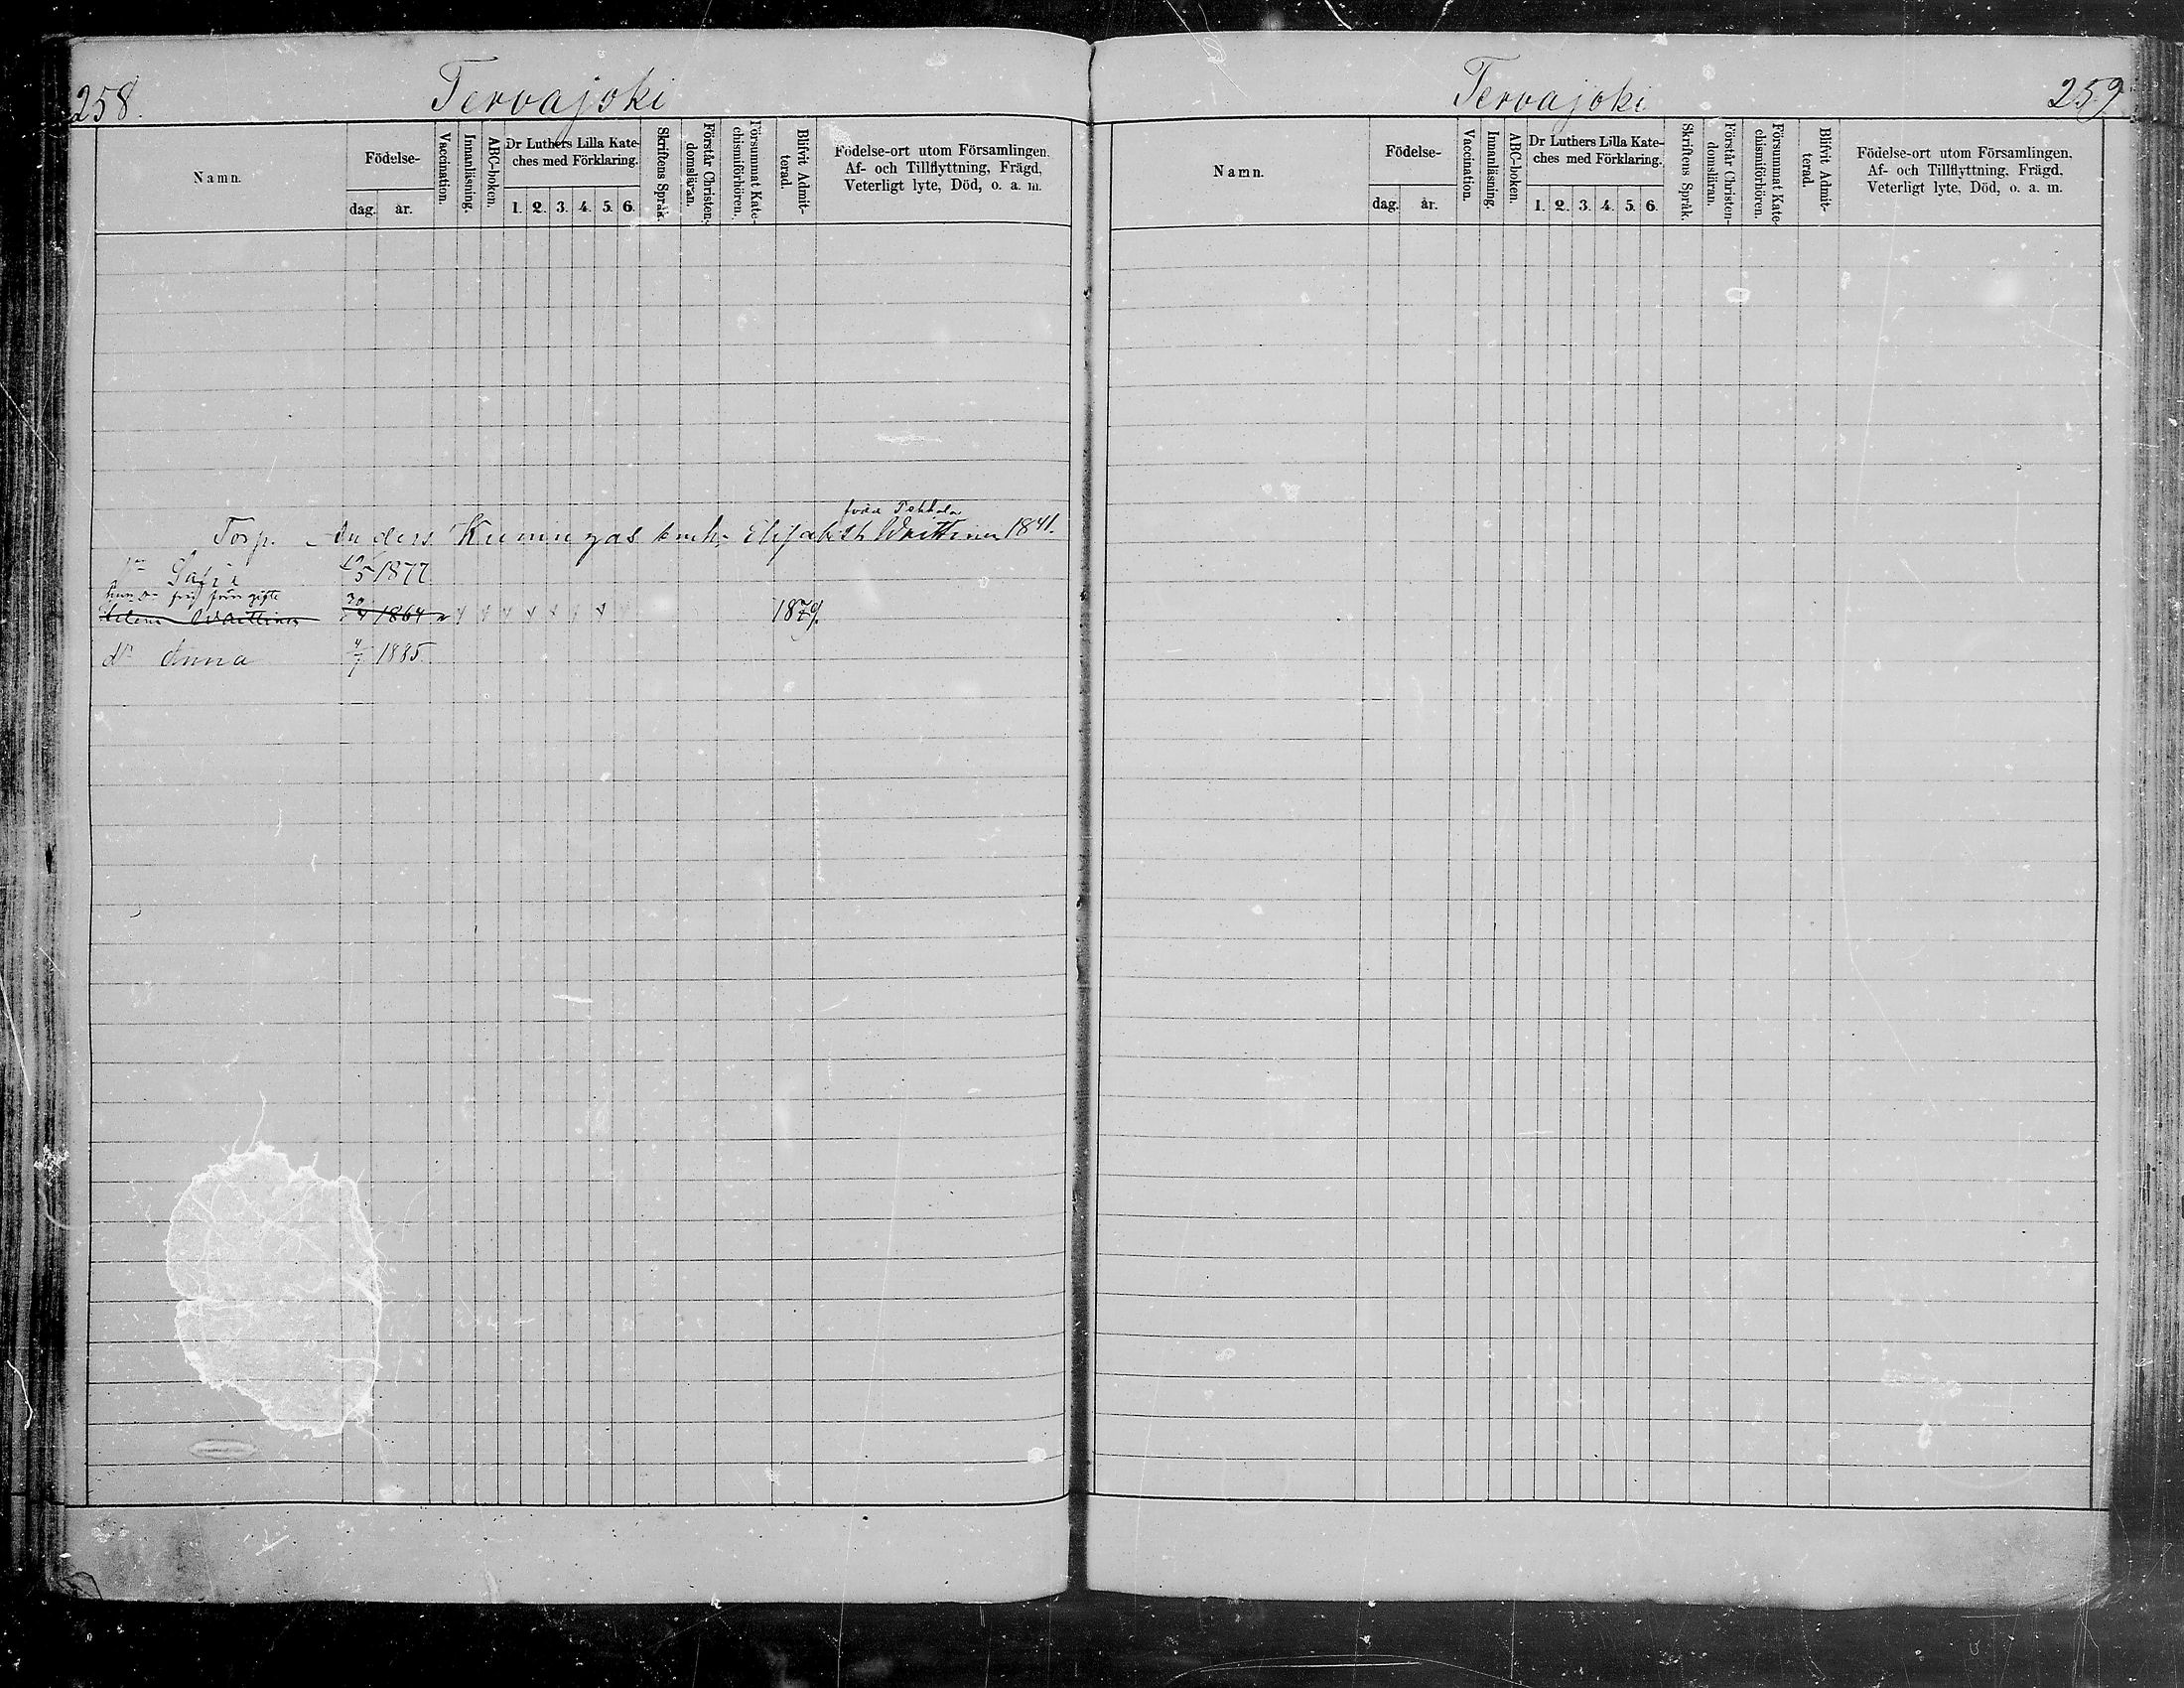 258.
Tervajoki
Namn.
Födelse-
dag.
år.
Vaccination.
Innanläsning.
ABC-boken.
Dr Luthers Lilla Kate-
ches med Förklaring.
1. 2. 3. 4. 5. 6.
Skriftens Språk.
Förstår Christen-
domsläran.
Försummat Kate-
chismiförhören.
Blifvit Admit-
terad.
Födelse-ort utom Församlingen.
Af- och Tillflyttning, Frägd,
Veterligt lyte, Död, o. a. m.
Torp. Anders Kuningas Elisabeth 1841.
5 1877
gifte
1864 1879.
Anna 4/7 1885.
Tervajoki
259
Namn.
Födelse-
dag.
år.
Vaccination.
Innanläsning.
ABC-boken.
Dr Luthers Lilla Kate-
ches med Förklaring.
1. 2. 3. 4. 5. 6.
Skriftens Språk.
Förstår Christen-
domsläran.
Försummat Kate-
chismiförhören.
Blifvit Admit-
terad.
Födelse-ort utom Församlingen,
Af- och Tillflyttning, Frägd,
Veterligt lyte, Död, o. a. m.